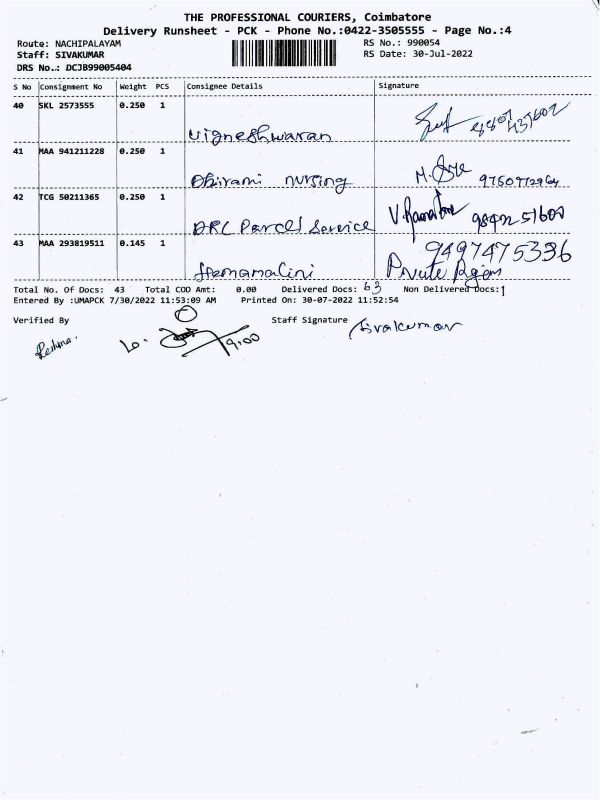 THE PROFESSIONAL COURIERS, Coimbatore
Delivery Runsheet - PCK - Phone No.:0422-3505555 - Page No.:4
Route: NACHIPALAYAM RS No.: 990054
Staff: SIVAKUMAR RS Date: 30-Jul-2022
DRS No.: DCJB99005404
S No Consignment No Weight PCS Consignee Details Signature
40 SKL 2573555 0.250 1
Vigneshwaran
41 MAA 941211228 0.250 1
Abirami nursing 9750772964
42 TCG 50211365 0.250 1
DRC Parcel Service
43 MAA 293819511 0.145 1 9497475336
Hemamalini Private
Total No. Of Docs: 43 Total COD Amt: 0.00 Delivered Docs: 63 Non Delivered Docs:1
Entered By :UMAPCK 7/30/2022 11:53:09 AM Printed On: 30-07-2022 11:52:54
Verified By Staff Signature Sivakumar
Reshma. 19.00